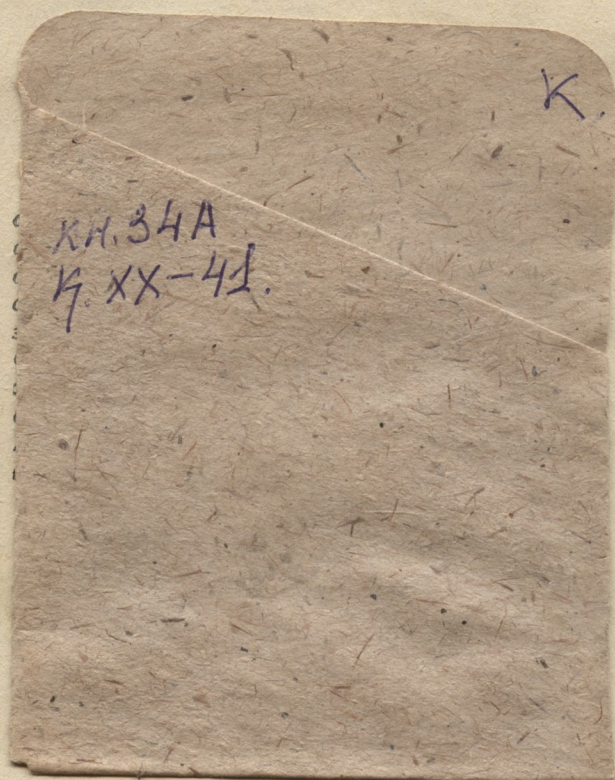 К.
КН. 34А
К. XX-41.